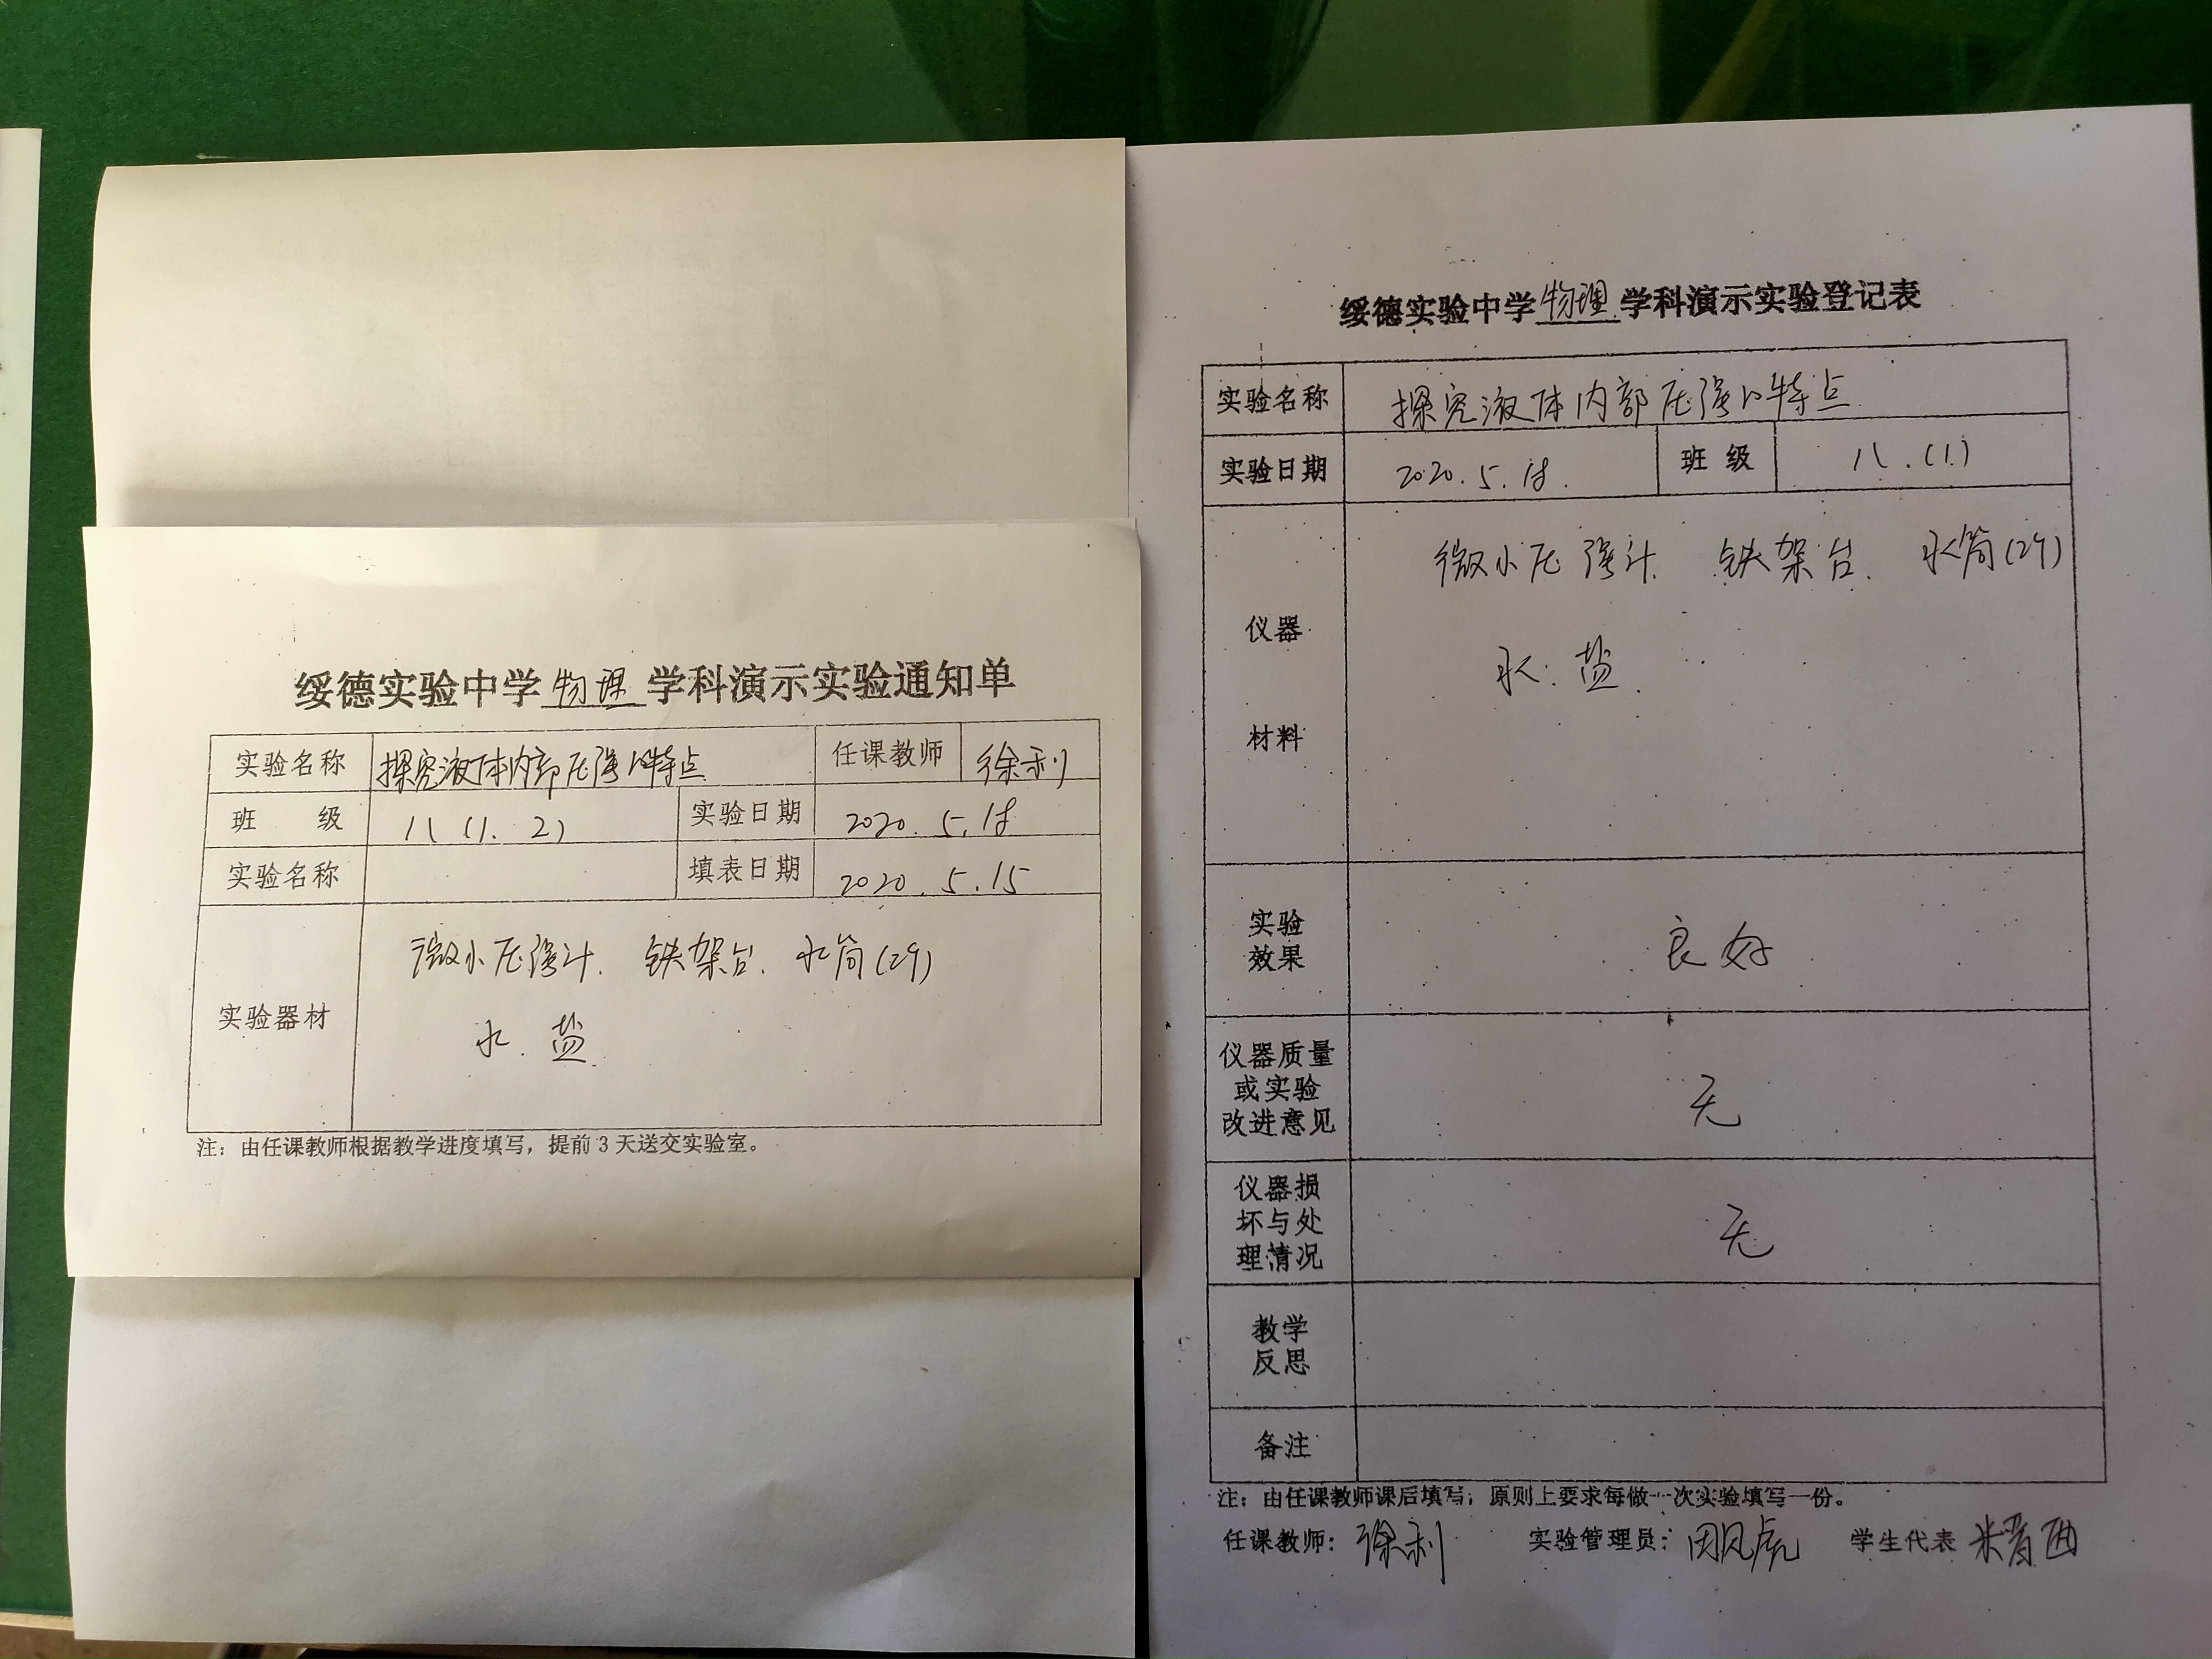 绥德实验中学物理学科演示实验通知单
实验名称 探究液体内部压强的特点 任课教师 徐利
班 级 八(1.2) 实验日期 2020.5.18
实验名称 填表日期 2020.5.15
实验器材 微小压强计. 铁架台. 水筒(2个)
水. 盐.
注：由任课教师根据教学进度填写，提前3天送交实验室。
绥德实验中学物理学科演示实验登记表
实验名称 探究液体内部压强的特点
实验日期 2020.5.18. 班 级 八.(1)
仪器
材料
微小压强计. 铁架台. 水筒(2个)
水. 盐.
实验
效果
良好
仪器质量
或实验
改进意见
无
仪器损
坏与处
理情况
无
教学
反思
备注
注：由任课教师课后填写，原则上要求每做一次实验填写一份。
任课教师：徐利 实验管理员： 学生代表